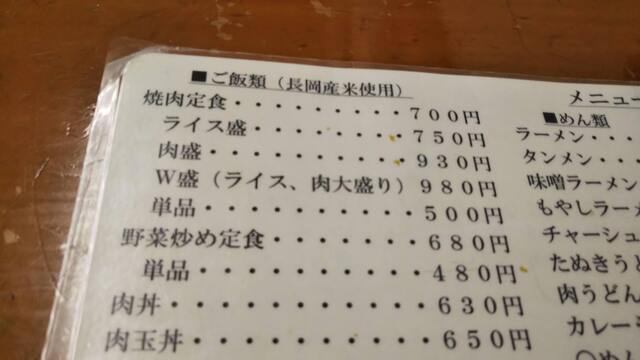 ■ご飯類（長岡産米使用）
焼肉定食・・・・・・・・・700円
ライス盛・・・・・・・・750円
肉盛・・・・・・・・・・930円
W盛（ライス、肉大盛り）980円
単品・・・・・・・・・・500円
野菜炒め定食・・・・・・・680円
単品・・・・・・・・・・480円
肉丼・・・・・・・・・・・630円
肉玉丼・・・・・・・・・・650円
メニュー
■めん類
ラーメン・・・
タンメン・・・
味噌ラーメン
もやしラー
チャーシュ
たぬきうど
肉うどん
カレー